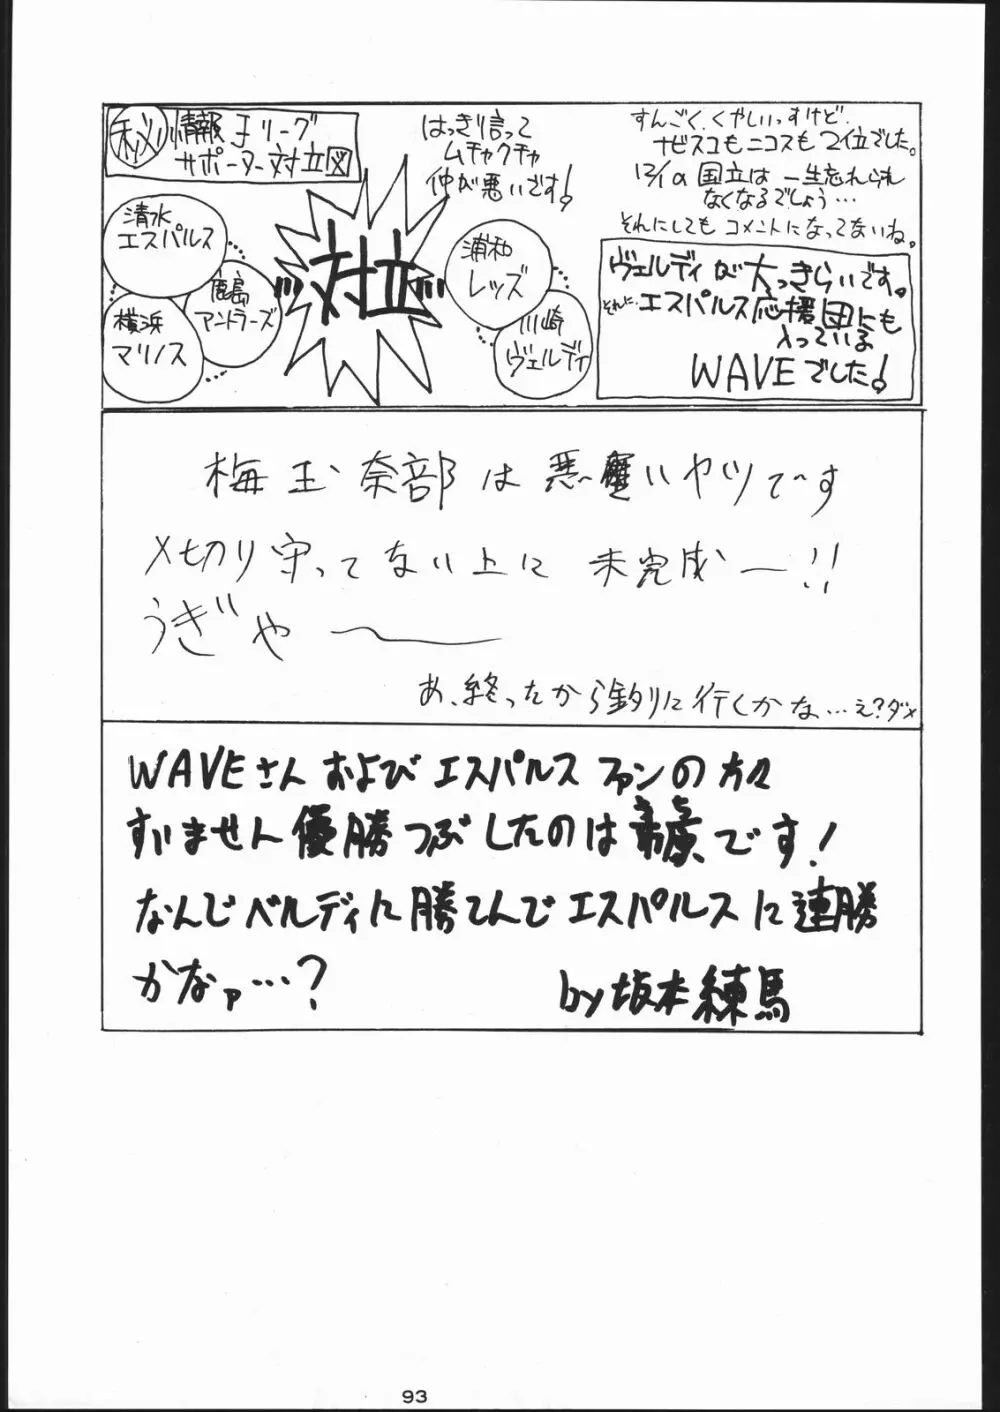 ㊙情報Jリーグ
サポーター対立図
清水
エスパルス
鹿島
アントラーズ
横浜
マリノス
対立
はっきり言って
ムチャクチャ
仲が悪いです!
浦和
レッズ
川崎
ヴェルディ
すんごく、くやしいっすけど、
ナビスコもニコスも2位でした。
12/1の国立は一生忘れられ
なくなるでしょう…
それにしてもコメントになってないね。
ヴェルディが大っきらいです。
それに、エスパルス応援団にも
入っている
WAVEでした!
梅玉奈部は悪いヤツです
〆切り守ってない上に 未完成ー!!
うぎゃ〜
あ、終ったから釣りに行くかな…え?ダメ
WAVEさんおよびエスパルスファンの方々
すいません優勝つぶしたのは です!
なんでベルディに勝てんでエスパルスに連勝
かなァ…?
by坂本練馬
93